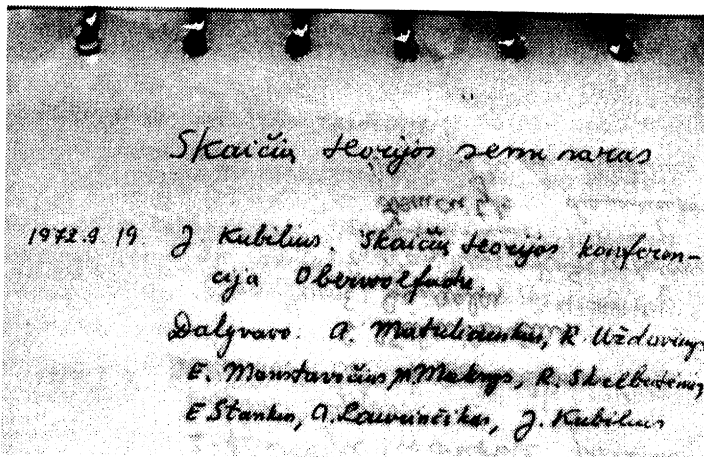 Skaičių teorijos seminaras
1972.9.19. J. Kubilius. Skaičių teorijos konferen-
cija Oberwolfache.
Dalyvavo: A. Matuliauskas, R. Uždavinys
E. Manstavičius, Maknys, R. Skrabutėnas,
E. Stankus, A. Laurinčikas, J. Kubilius